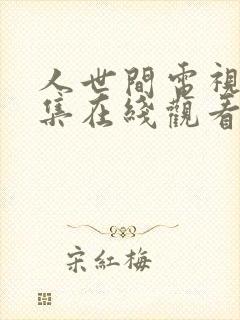 人世間電視
集在綫觀看
宋紅梅